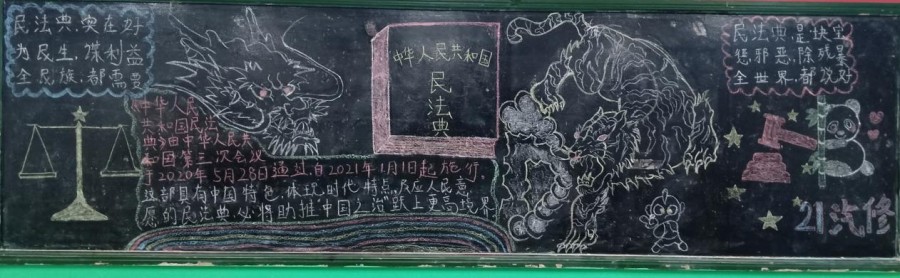 民法典,实在好
为民生,谋利益
全民族,都需要
中华人民共和国
民
法
典
民法典,是块宝
惩邪恶,除残暴
全世界,都说好
中华人民
共和国民法
典》由中华人民共
和国第三次会议
于2020年5月28日通过,自2021年1月1日起施行。
这部具有中国特色、体现时代特点,反应人民意
愿的民法典,必将助推"中国之治"跃上更高境界
21汽修